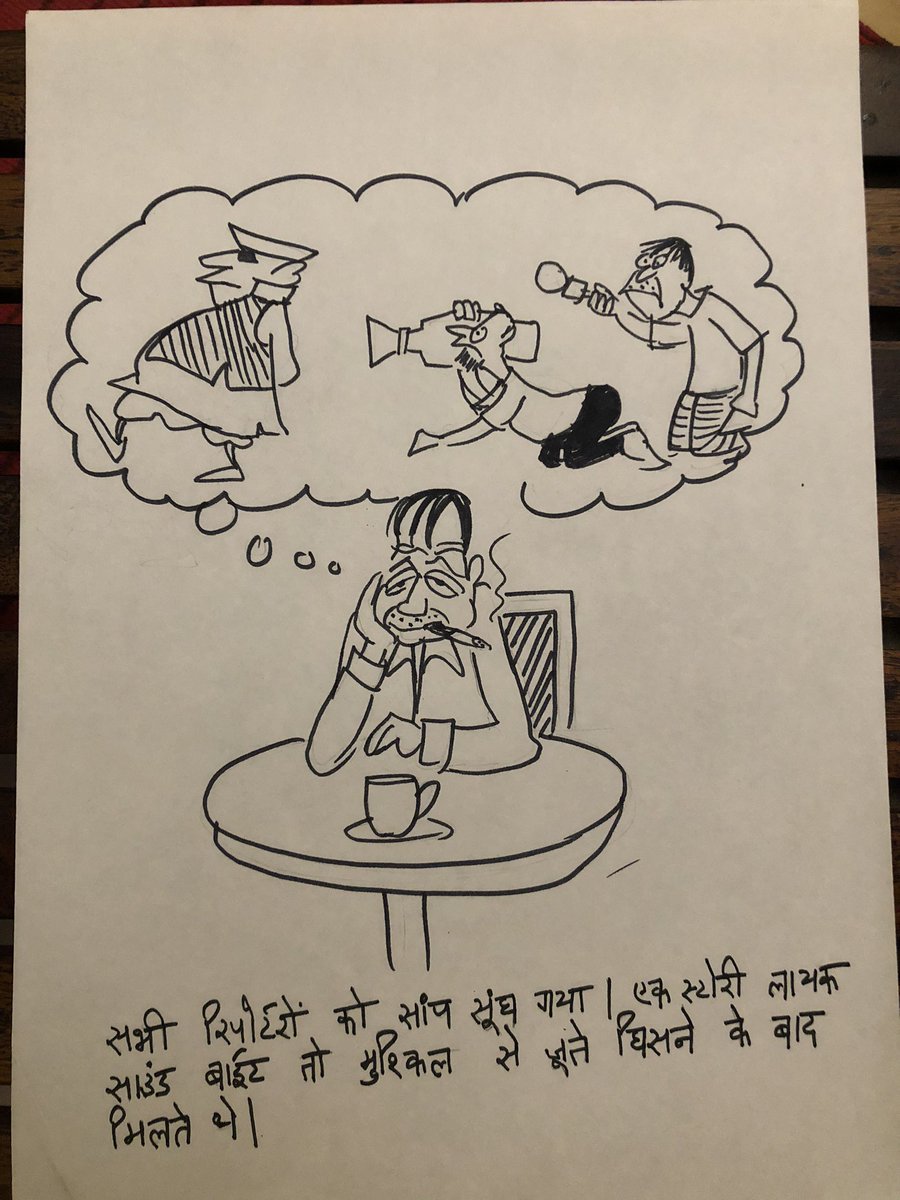 सभी रिपोर्टरों को सांप सूंघ गया। एक स्टोरी लायक
साउंड बाईट तो मुश्किल से जूते घिसने के बाद
मिलते थे।